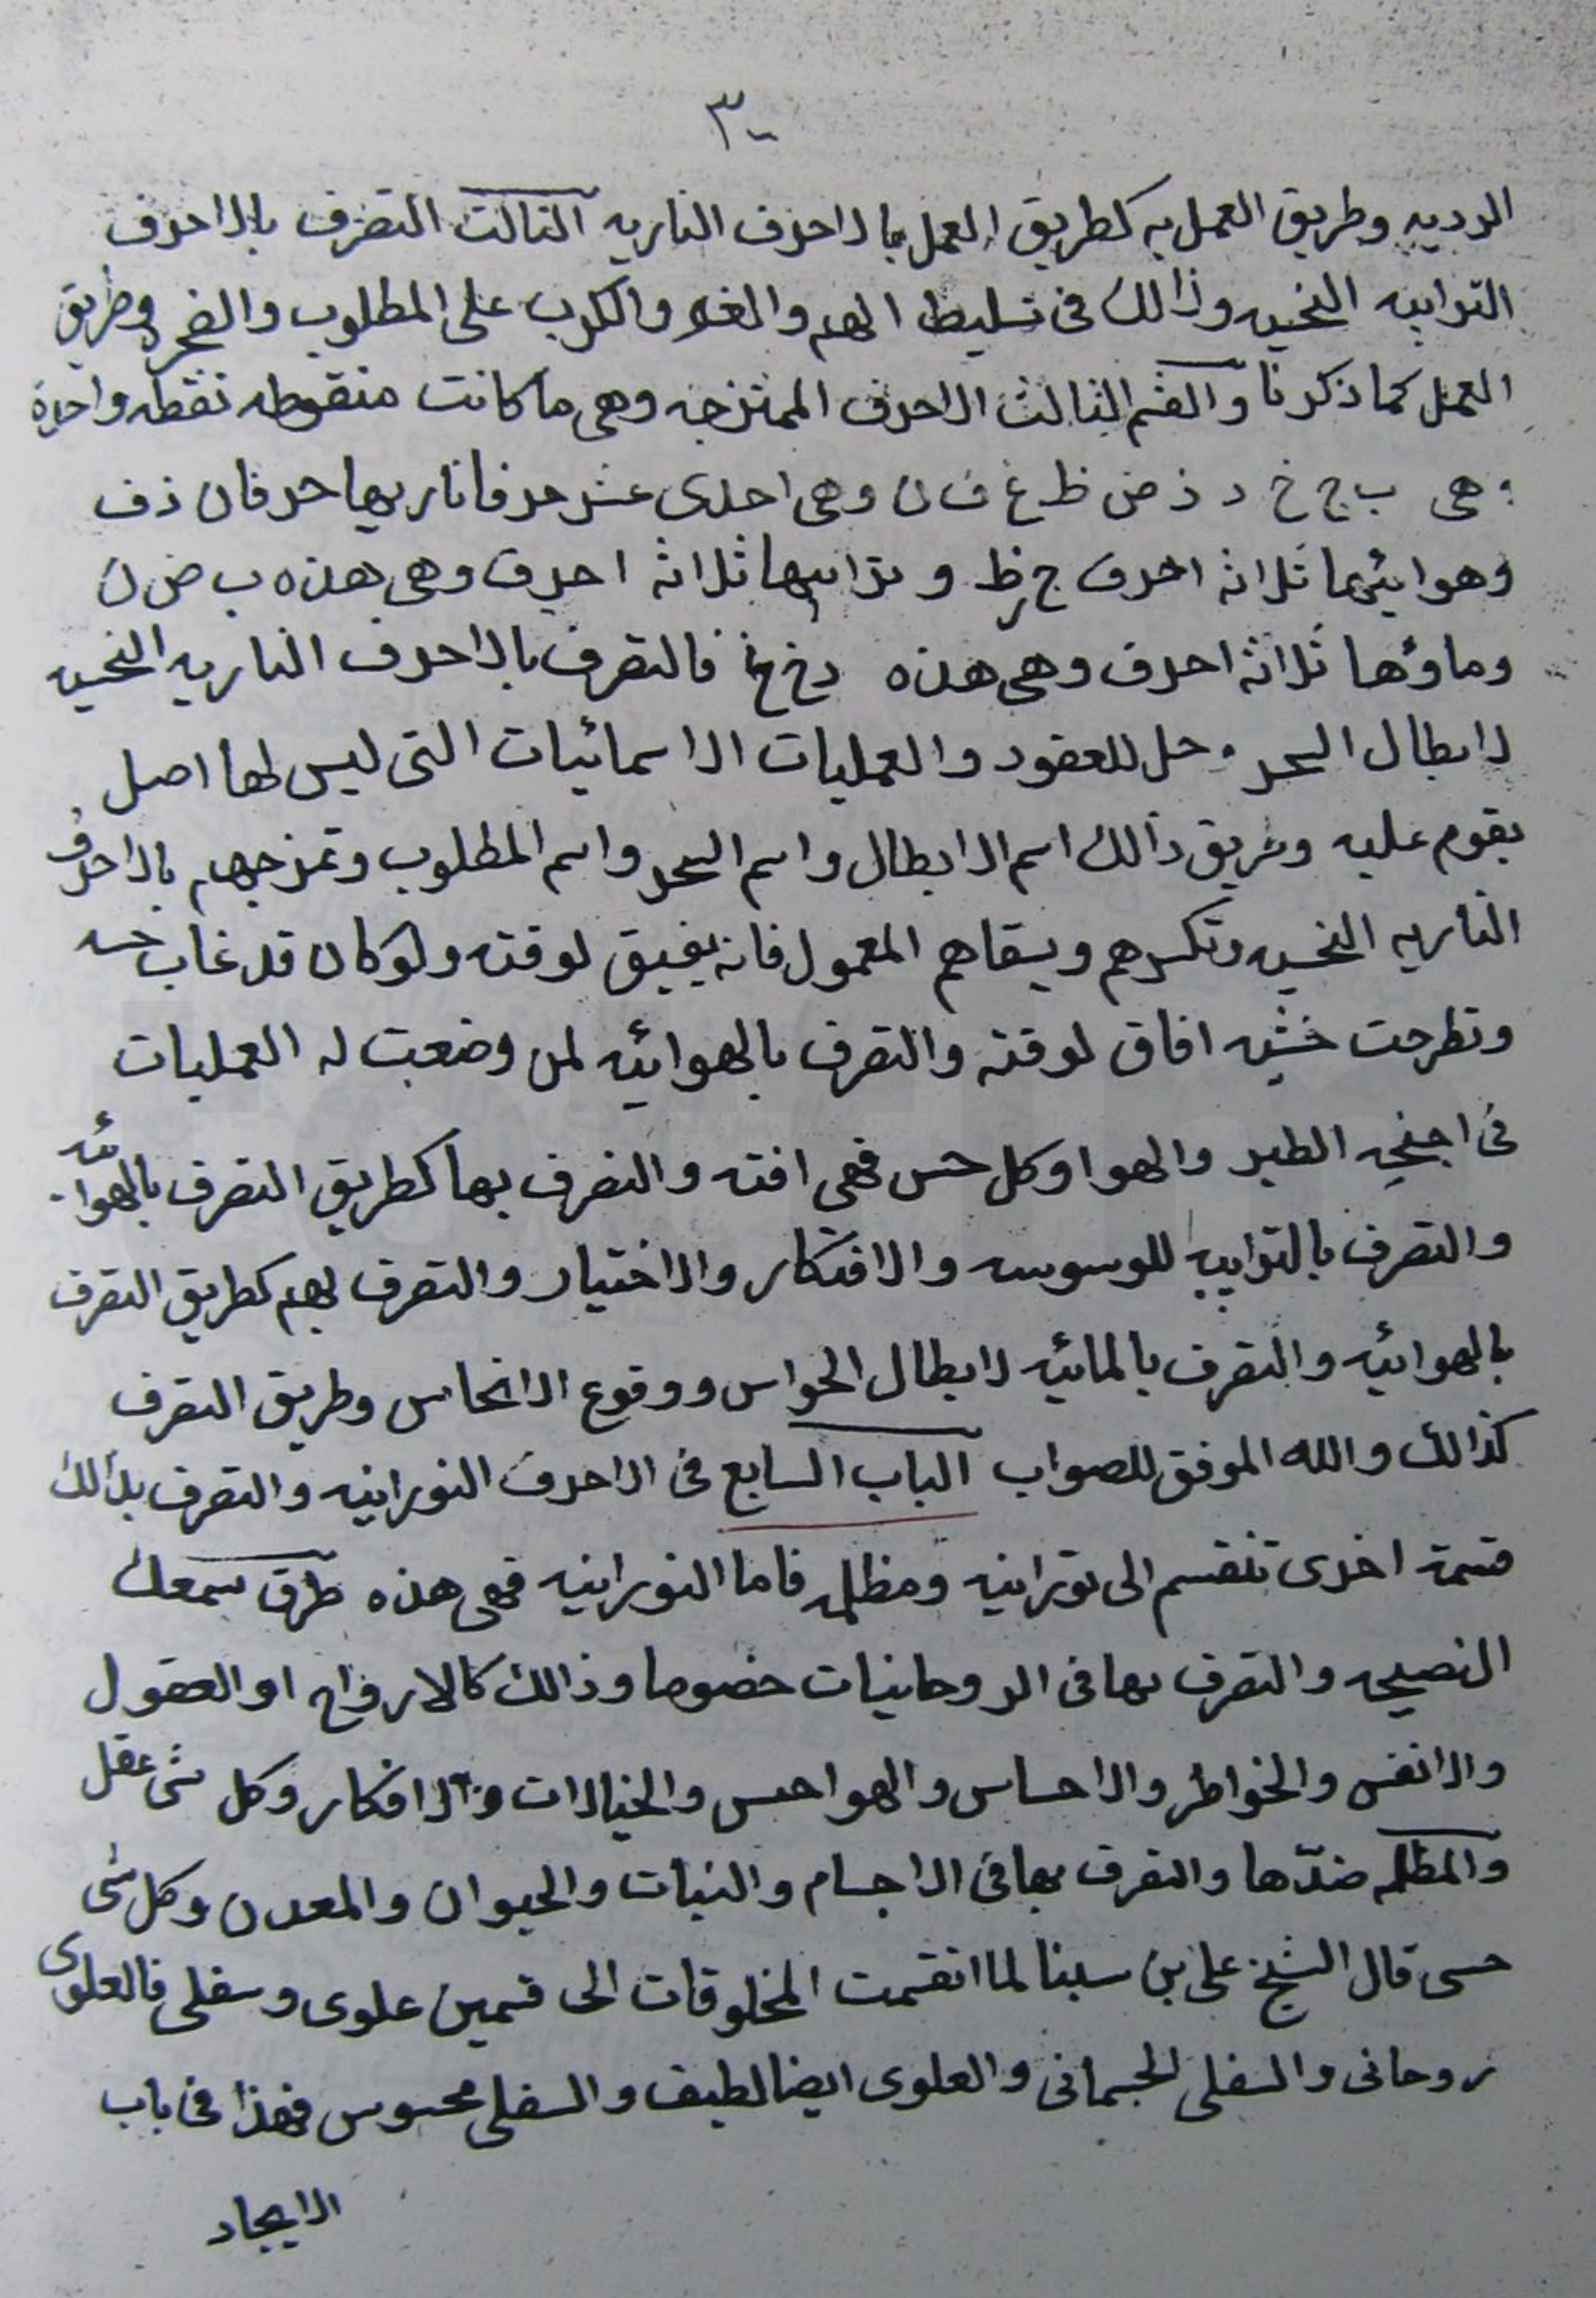 ٣٠
الرديه وطريق العمل به كطريق العمل بالاحرف الناريه الثالث التصرف بالاحرف
الترابيه النحسيه وذالك فى تسليط الهم والغم والكرب على المطلوب والفجره وطريق
العمل كما ذكرنا والقسم الثالث الاحرف الممتزجه وهى ما كانت منقوطه نقطه واحدة
هى ب ج خ د ذ ض ظ غ ف ن وهى احدى عشر حرفا ناريها حرفان ذ ف
وهوايئها ثلاثه احرف ج ز ظ وترابيها ثلاثه احرف وهى هذه ب ض ن
وماؤها ثلاثه احرف وهى هذه د خ غ فالتصرف بالاحرف الناريه النحسيه
لابطال السحر وحل للعقود والعمليات الاسمائيات التى ليس لها اصل
يقوم عليه وطريق ذالك اسم الابطال واسم السحر واسم المطلوب وتمزجهم بالاحرف
الناريه النحسيه وتكسرهم ويسقاهم المعمول فانه يفيق لوقته ولو كان قد غاب حسه
وتطرحت افاق لوقته والتصرف بالهوائيه لمن وضعت له العمليات
فى اجنحه الطير والهوا وكل حس فهى افته والتصرف بها كطريق التصرف بالهوائيه
والتصرف بالترابيه للوسوسه والافتكار والاختيار والتصرف بهم كطريق التصرف
بالهوائيه والتصرف بالمائيه لابطال الحواس ووقوع الانحاس وطريق التصرف
كذالك والله الموفق للصواب الباب السابع فى الاحرف النورانيه والتصرف بذالك
قسمة اخرى تنقسم الى نورانيه ومظلمه فاما النورانيه فهى هذه طرق سمعك
النصيحه والتصرف بها فى الروحانيات خصوصا وذالك كالارواح او العقول
والانفس والخواطر والاحساس والهواجس والخيالات والافكار وكل شى عقل
والمظلمه ضدّها والتصرف بها فى الاجسام والنبات والحيوان والمعدن وكل شى
حسى قال الشيخ على بن سينا لما انقسمت المخلوقات الى قسمين علوى وسفلى فالعلوى
روحانى والسفلى الجسمانى والعلوى ايضا لطيف والسفلى محسوس فهذا فى باب
الايجاد